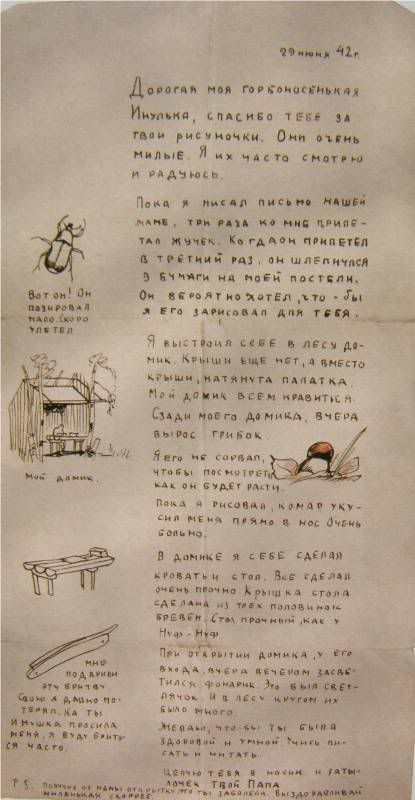 29 июня 42 г.
Дорогая моя горбоносенькая
Инулька, спасибо тебе за
твои рисуночки. Они очень
милые. Я их часто смотрю
и радуюсь.
Пока я писал письмо нашей
маме, три раза ко мне приле-
тал жучек. Когда он прилетел
в третий раз, он шлепнулся
в бумаги на моей постели.
Он вероятно хотел, что-бы
я его зарисовал для тебя.
Вот он! Он
позировал
мало. Скоро
улетел
Я выстроил себе в лесу до-
мик. Крыши еще нет, а вместо
крыши, натянута палатка.
Мой домик всем нравиться.
Сзади моего домика, вчера
вырос грибок.
Я его не сорвал,
чтобы посмотреть
как он будет расти.
Мой домик.
Пока я рисовал, комар уку-
сил меня прямо в нос очень
больно.
В домике я себе сделал
кровать и стол. Все сделал
очень прочно. Крышка стола
сделана из трех половинок
бревен. Стол прочный, как у
Нуф-Нуф
При открытии домика, у его
входа, вчера вечером засве-
тился, фонарик. Это был свет-
лячок. И в лесу кругом их
было много.
Мне
подарили
эту бритву
Свою я давно по-
терял. Ка ты
Инушка просила
меня, я буду брить-
ся часто.
Желаю, что-бы ты была
здоровой и умной. Учись пи-
сать и читать.
Целую тебя в носик и заты-
лочек твой Папа
P.S. получил от мамы открытку что ты заболела. Выздоравливай
миленькая скорее.